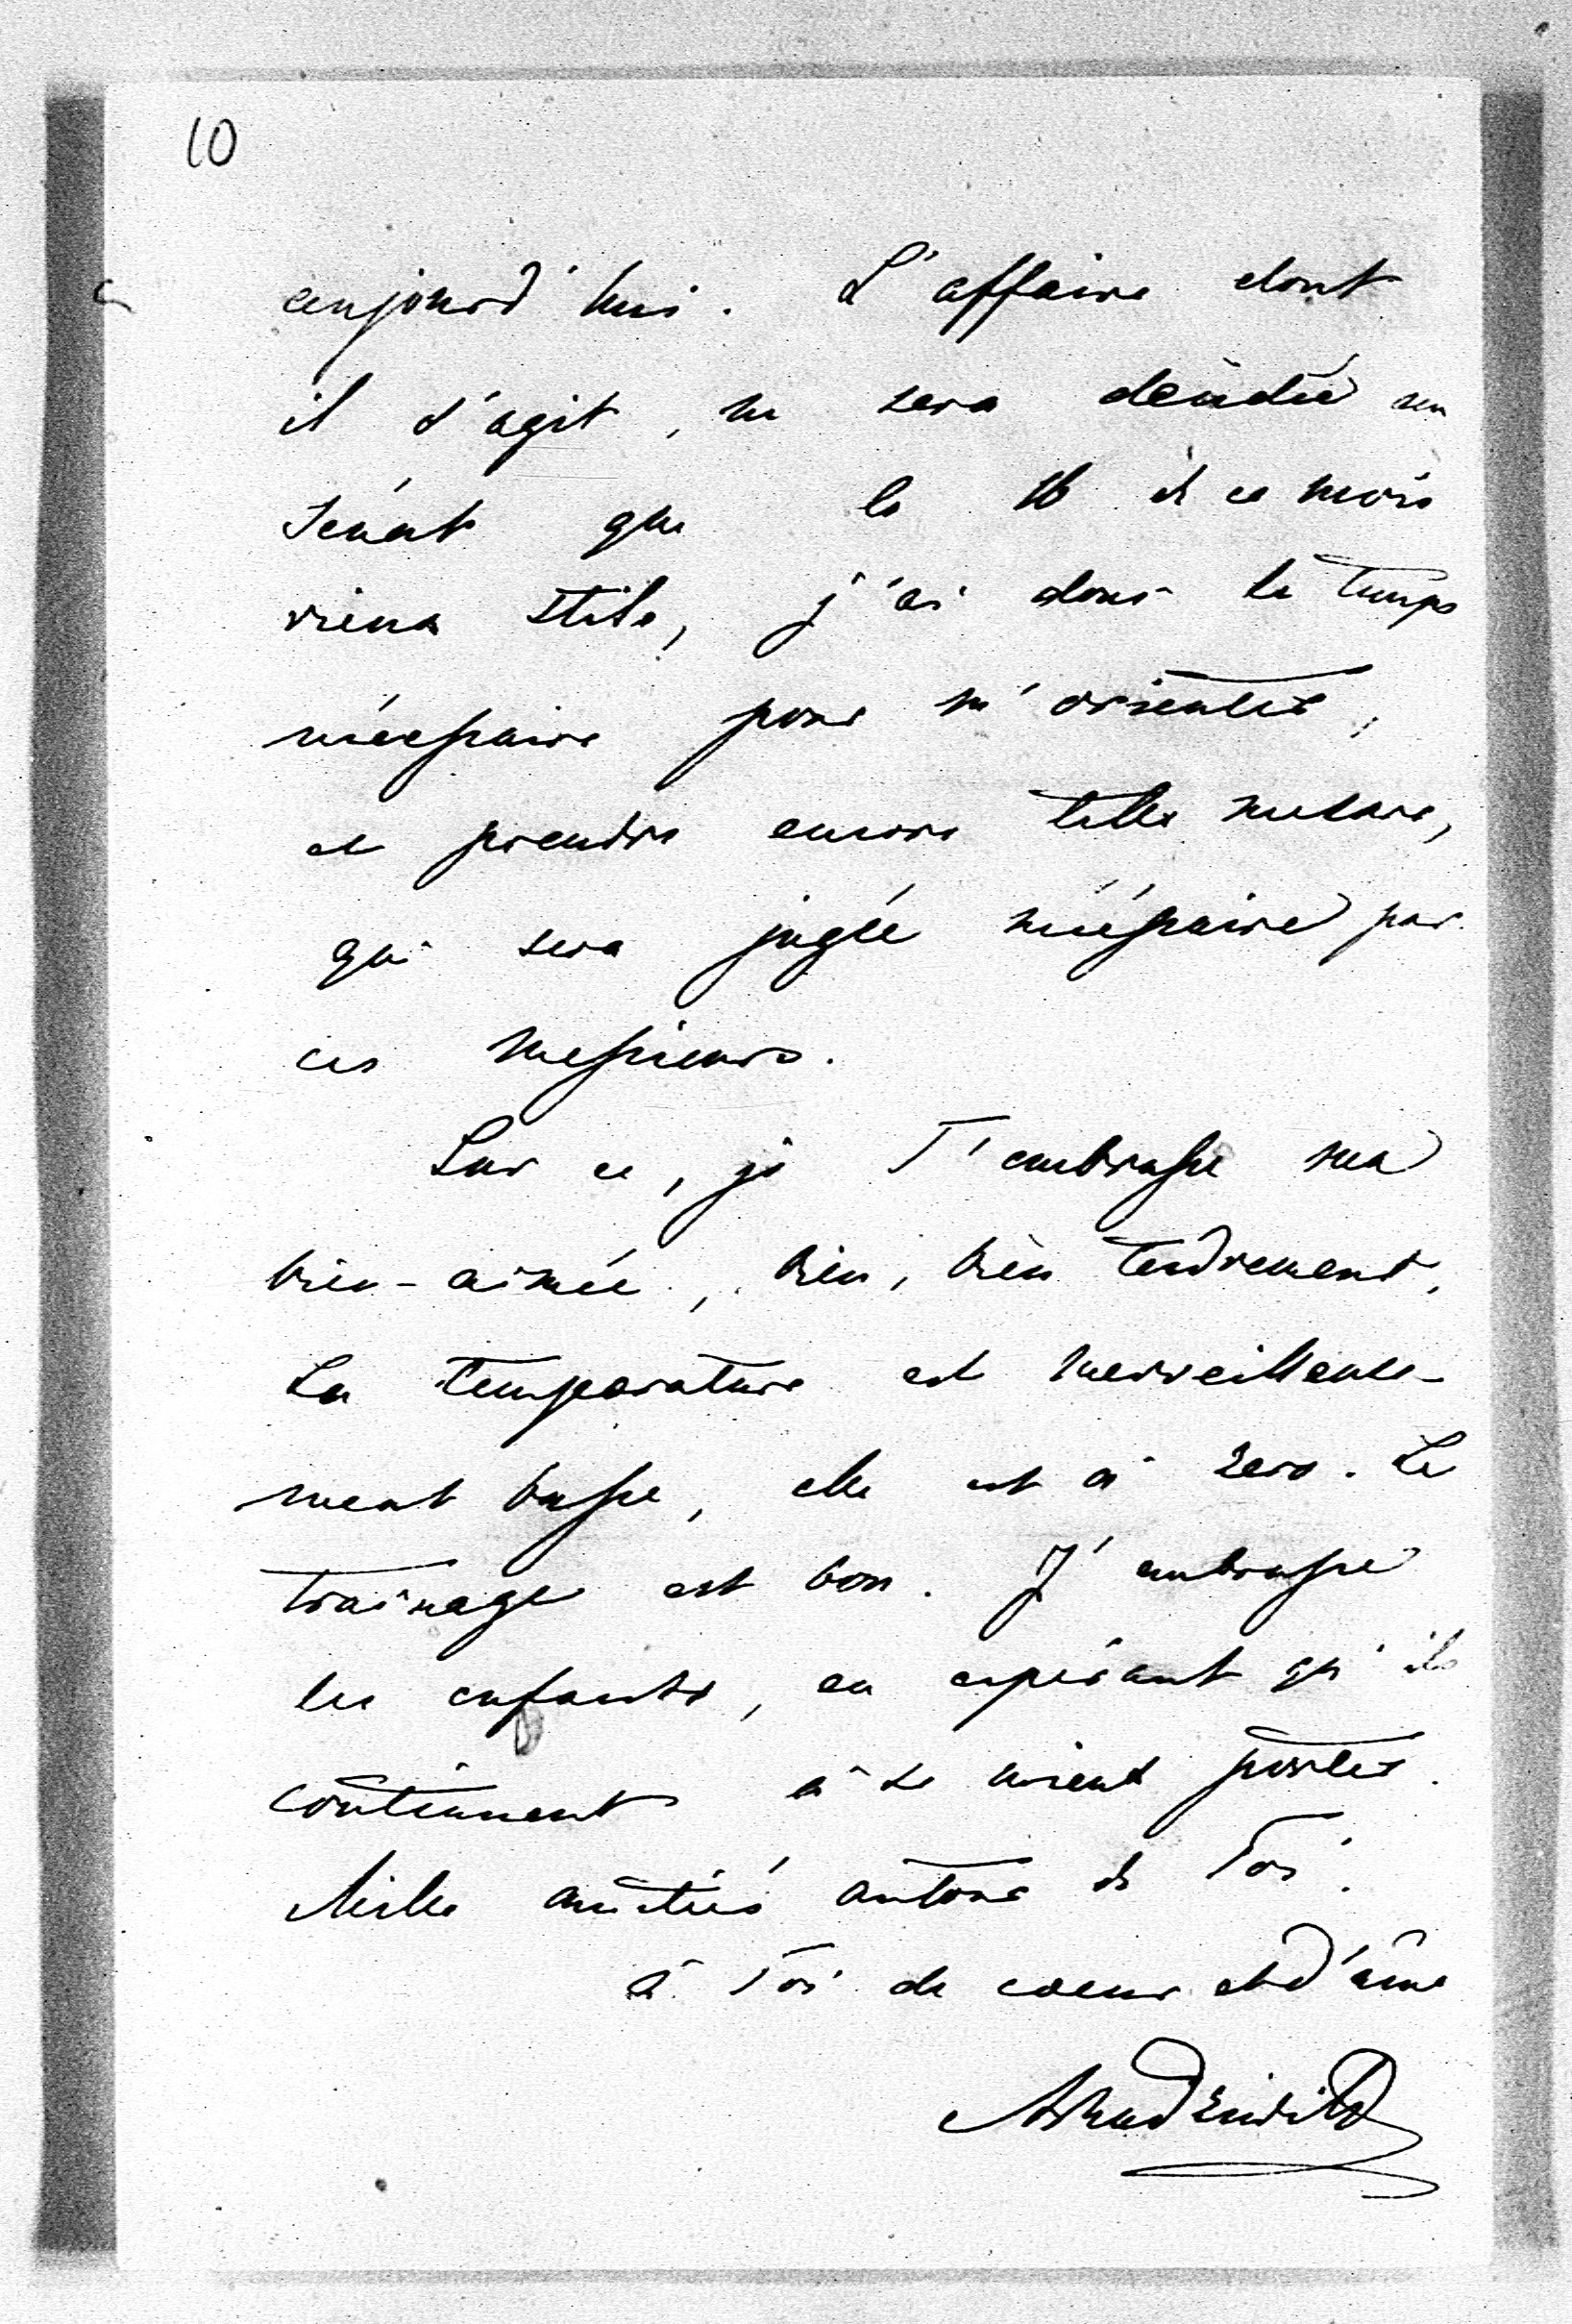 10
aujourd'hui. L'affaire dont
il s'agit, ne sera décidée au
Sénat que le 16 de ce mois
vieux stile, j'ai donc le temps
nécessaire pour m'orienter,
et prendre encore telle mesure,
qui sera jugée nécessaire par
ces messieurs.
Sur ce, je T'embrasse ma
bien-aimée, bien, bien tendrement,
La temperature est merveilleuse-
ment basse, elle est à zero. Le
trainage est bon. J'embrasse
les enfants, en espérant qu'ils
continuent à se mieux porter.
Mille amitiés autour de Toi.
à Toi de coeur et d'âme